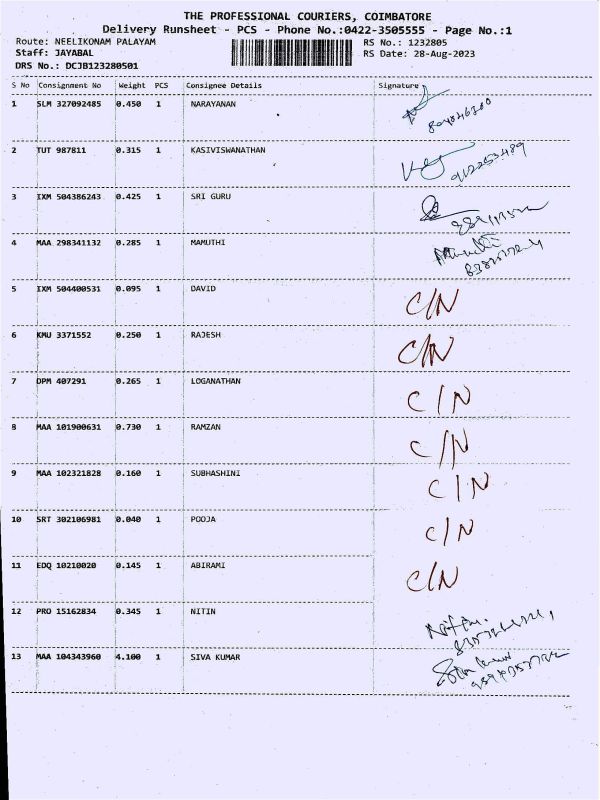 THE PROFESSIONAL COURIERS, COIMBATORE
Delivery Runsheet - PCS - Phone No.:0422-3505555 - Page No.:1
Route: NEELIKONAM PALAYAM RS No.: 1232805
Staff: JAYABAL RS Date: 28-Aug-2023
DRS No.: DCJB123280501
S No Consignment No Weight PCS Consignee Details Signature
1 SLM 327092485 0.450 1 NARAYANAN
2 TUT 987811 0.315 1 KASIVISWANATHAN
3 IXM 504386243 0.425 1 SRI GURU
4 MAA 298341132 0.285 1 MAMUTHI
5 IXM 504400531 0.095 1 DAVID C/N
6 KMU 3371552 0.250 1 RAJESH C/N
7 DPM 407291 0.265 1 LOGANATHAN C/N
8 MAA 101900631 0.730 1 RAMZAN C/N
9 MAA 102321828 0.160 1 SUBHASHINI C/N
10 SRT 302106981 0.040 1 POOJA C/N
11 EDQ 10210020 0.145 1 ABIRAMI C/N
12 PRO 15162834 0.345 1 NITIN Nitin.
13 MAA 104343960 4.100 1 SIVA KUMAR